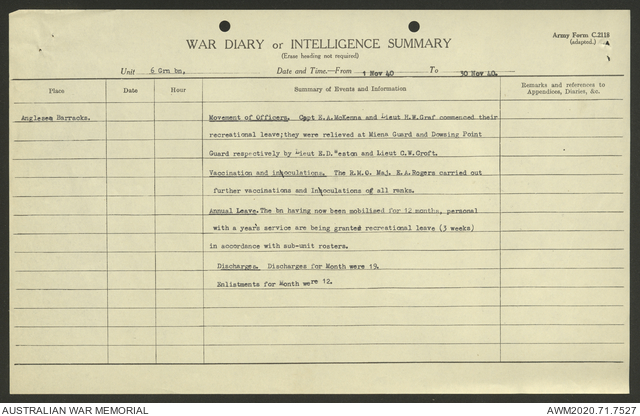 Army Form C.2118
(adapted.)
WAR DIARY or INTELLIGENCE SUMMARY
(Erase heading not required)
Unit 6 Grn bn, Date and Time.—From 1 Nov 40 To 30 Nov 40.
Place Date Hour Summary of Events and Information Remarks and references to
Appendices, Diaries, &c.
Anglesea Barracks. Movement of Officers. Capt E.A.McKenna and Lieut H.W.Graf commenced their
recreational leave;they were relieved at Miena Guard and Dowsing Point
Guard respectively by Lieut E.D.Weston and Lieut C.W.Croft.
Vaccination and inoculations. The R.M.O. Maj. E.A.Rogers carried out
further vaccinations and Inoculations of all ranks.
Annual Leave.The bn having now been mobilised for 12 months, personal
with a year's service are being granted recreational leave (3 weeks)
in accordance with sub-unit rosters.
Discharges. Discharges for Month were 19.
Enlistments for Month were 12.
AUSTRALIAN WAR MEMORIAL AWM2020.71.7527